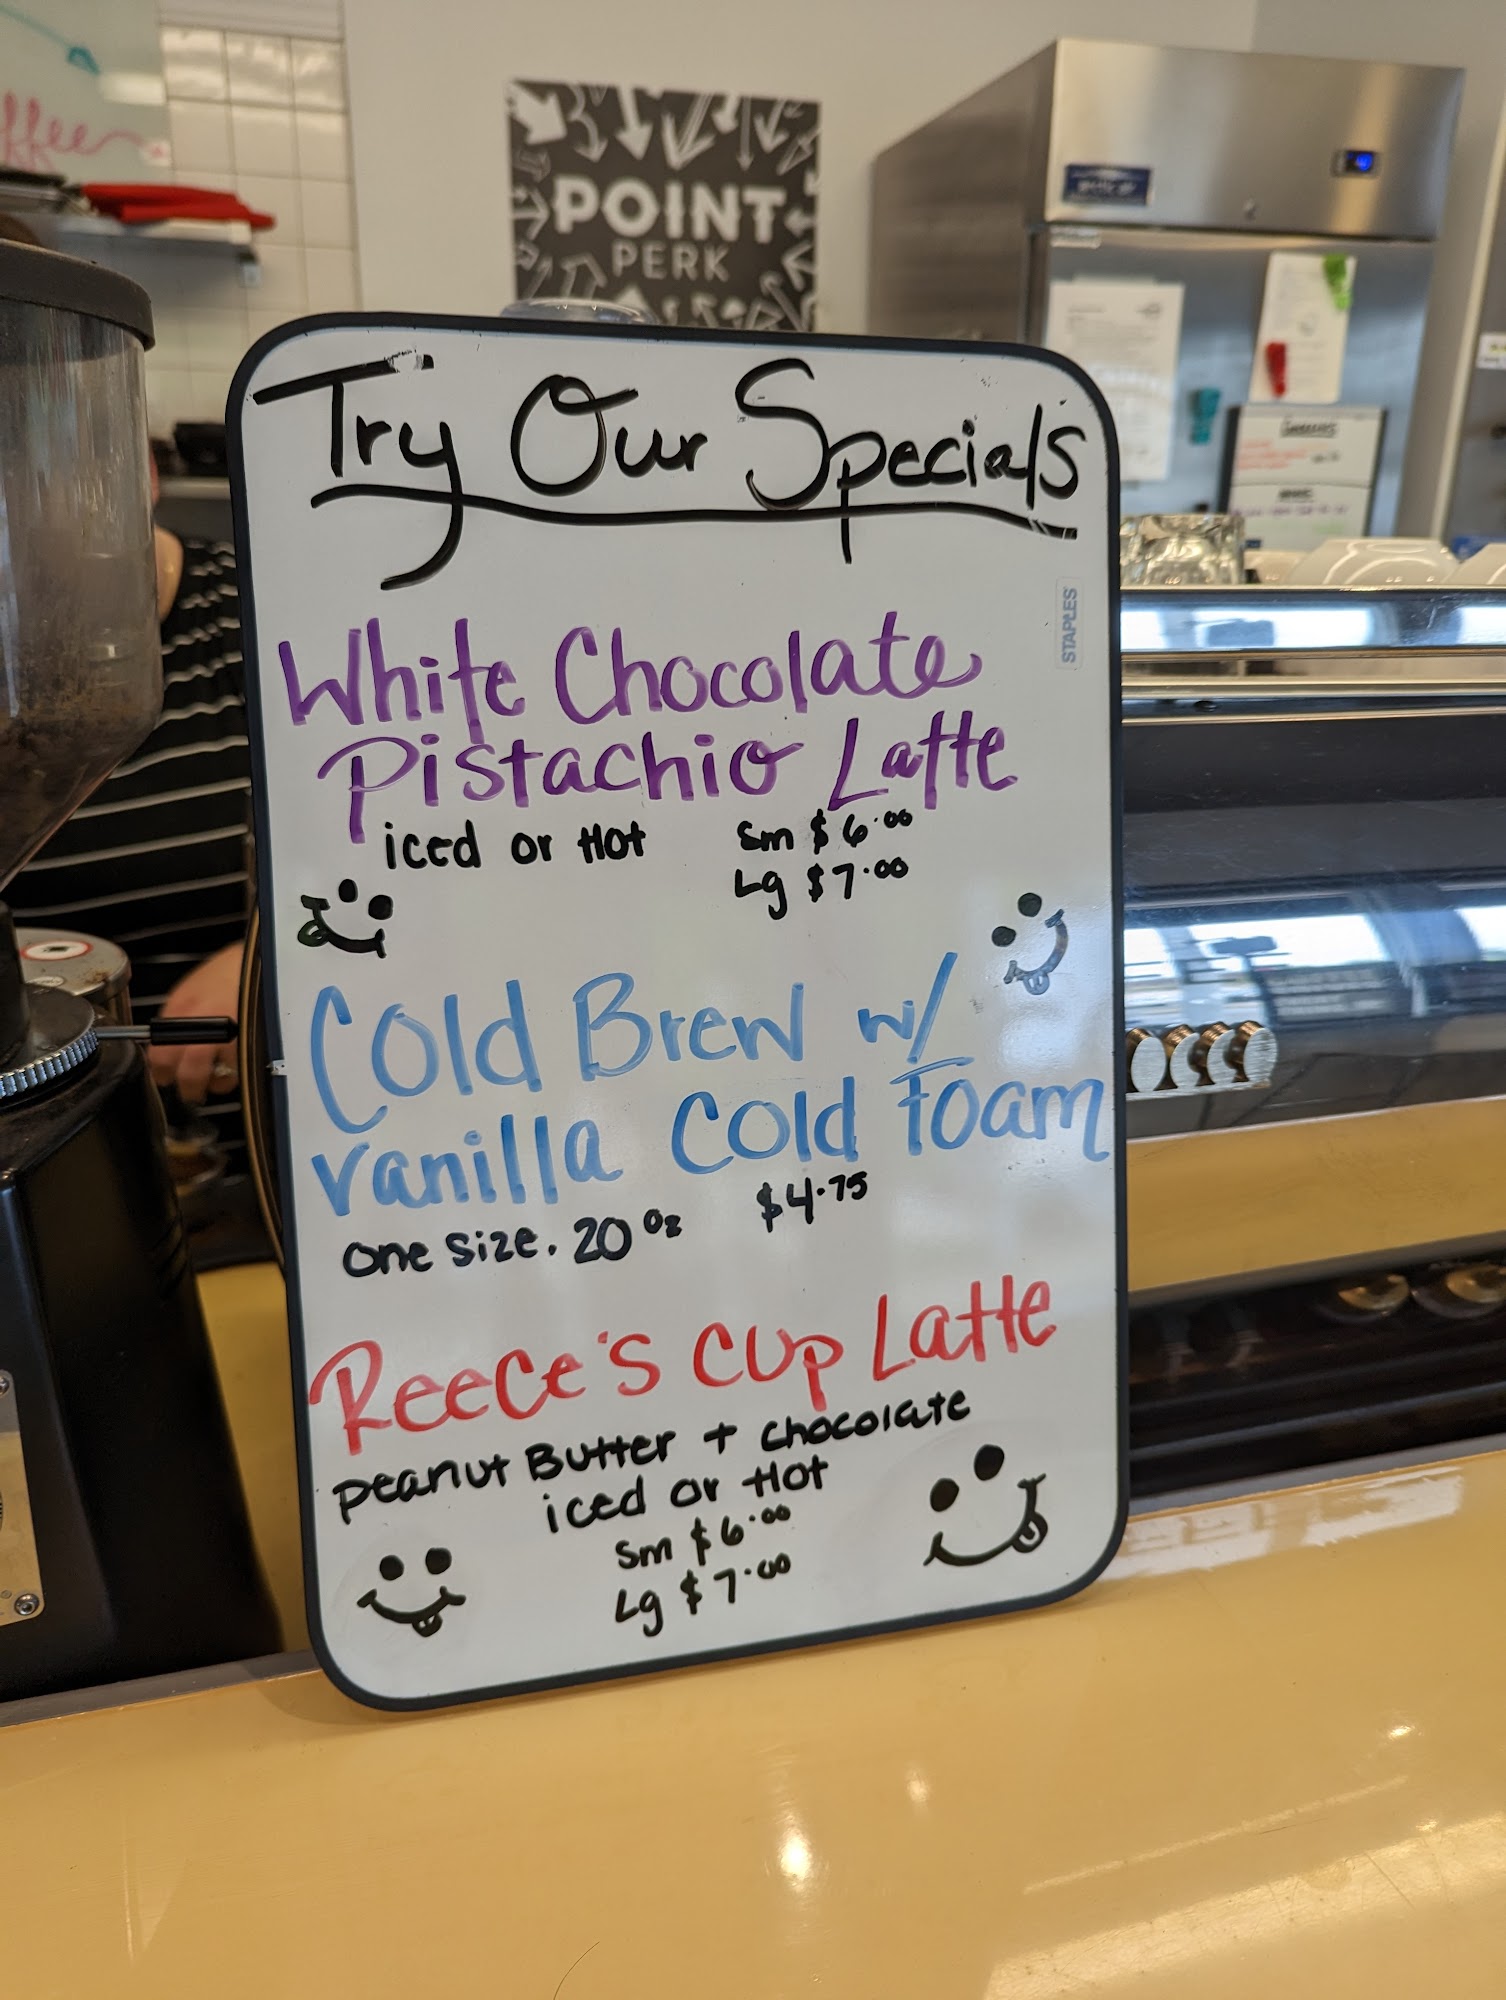 ffee
POINT
PERK
Try Our Specials
STAPLES
White Chocolate
Pistachio Latte
iced or Hot
Sm $6.00
Lg $7.00
Cold Brew w/
vanilla Cold Foam
one size. 20 oz $4.75
Reece's Cup Latte
peanut Butter + chocolate
iced or Hot
Sm $6.00
Lg $7.00